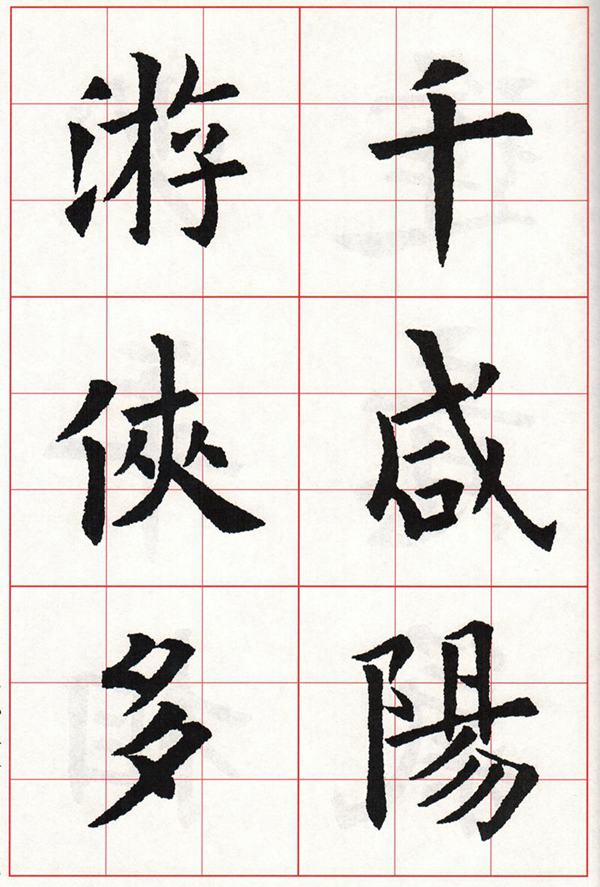 千咸陽
游俠多